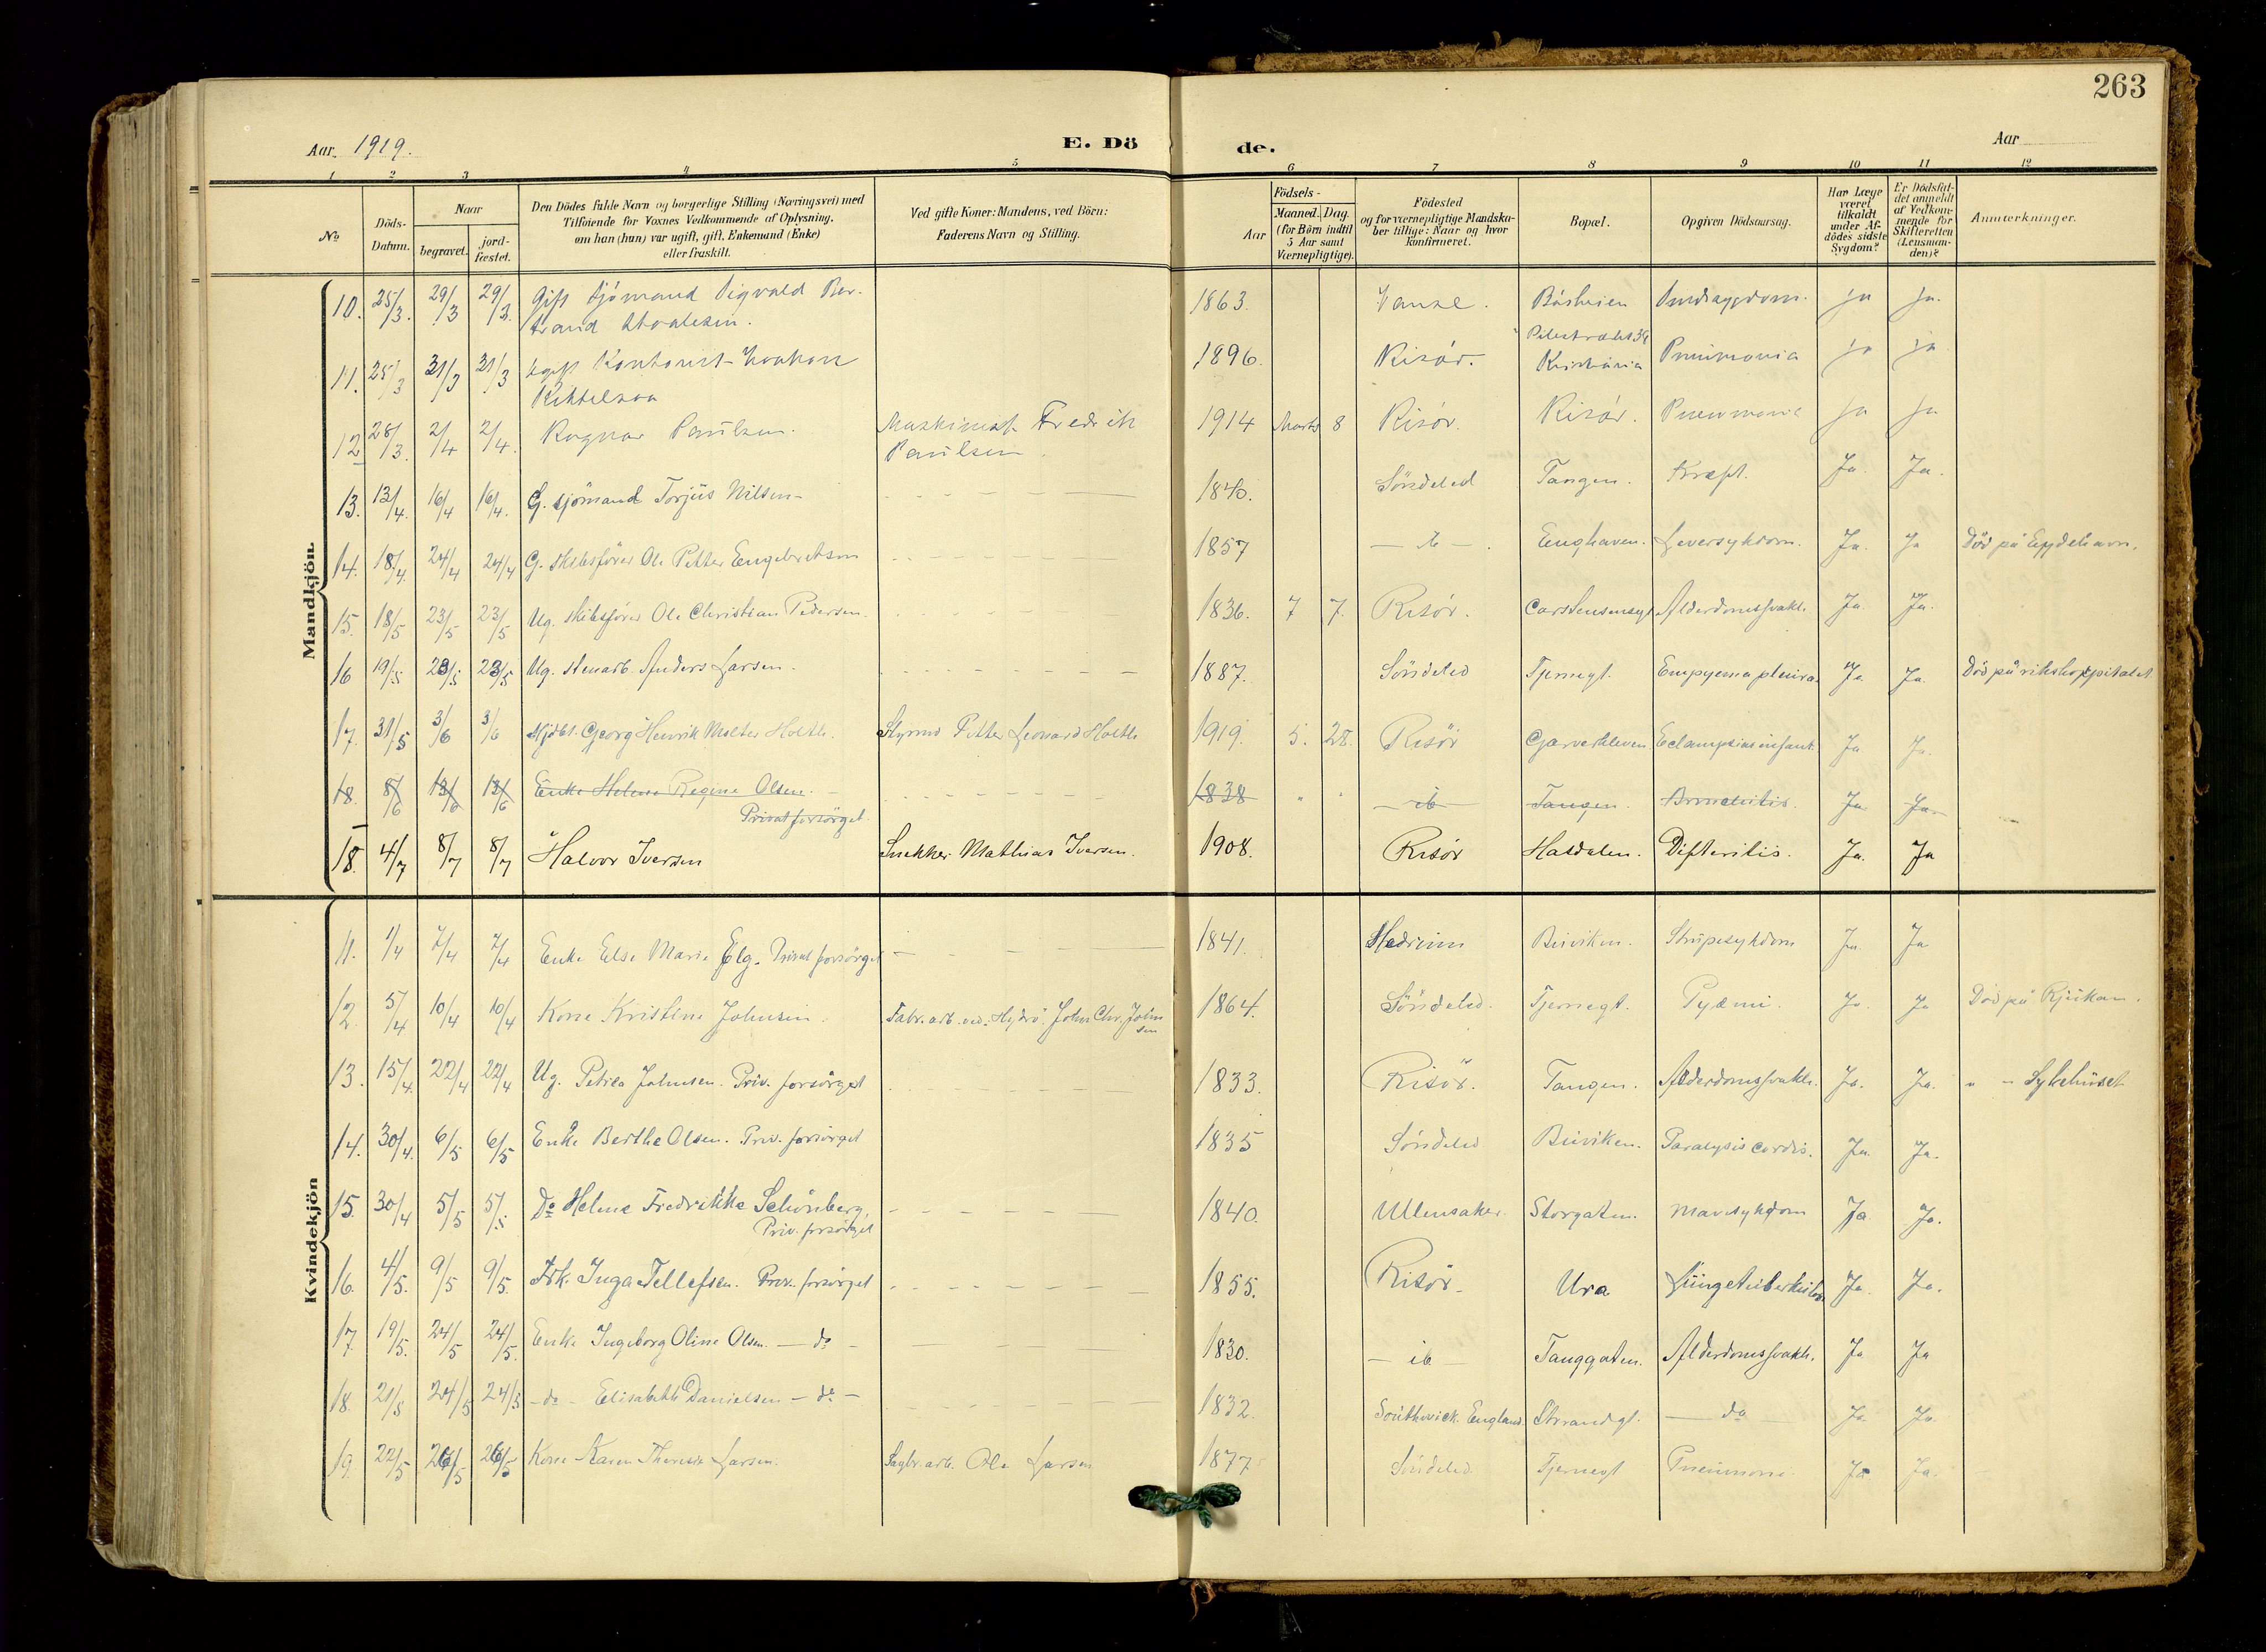 263
Aar 1919.
E. Dö de.
Aar
1 2 3 4 5 6 7 8 9 10 11 12
No
Döds-Datum.
Naar begravet. jord-fæstet.
Den Dödes fulde Navn og borgerlige Stilling (Næringsvei) med Tilföiende for Voxnes Vedkommende af Oplysning, om han (hun) var ugift, gift, Enkemand (Enke) eller fraskilt.
Ved gifte Koner: Mandens, ved Börn: Faderens Navn og Stilling.
Födsels-
Aar Maaned. Dag. (for Börn indtil 5 Aar samt Værnepligtige).
Födested og for værnepligtige Mandskaber tillige: Naar og hvor konfirmeret.
Bopæl.
Opgiven Dödsaarsag.
Har Læge været tilkaldt under Afdödes sidste Sygdom?
Er Dödsfaldet anmeldt af Vedkommende for Skifteretten (Lensmanden)?
Anmærkninger.
Mandkjön.
10. 25/3. 29/3 29/3. Gift Sjömand Sigvald 1863. Vanse. Båsheien ja ja.
11. 25/3 31/3 31/3 Kontorist Haakon 1896. Risör. Pilestrædet Kristiania Pneumonia ja ja
Kittelsen
12 28/3. 2/4 2/4. Ragnar Paulsen. Maskinist Fredrik Paulsen. 1914 Marts 8 Risör. Risör. Pneumonie ja ja
13. 13/4. 16/4 16/4. G. sjömand Torjus Nilsen 1840. Söndeled Tangen. Kræft. Ja. Ja.
14. 18/4. 24/4 24/4 G. Skibsförer Ole Petter Engebretsen 1857 — ib — Enghaven. Leversykdom. Ja. Ja Död på Eydehavn.
15. 18/5 23/5 23/5 Ug. Skibsförer Ole Christian Pedersen. 1836. 7 7. Risör. Carstensensgt Alderdomssvakh. Ja. Ja.
16 19/5 23/5 23/5 Ug. Stenarb. Anders Larsen. 1887. Söndeled Tjernegt. Empyema pleura. Ja Ja. Död på rikshospitalet
17. 31/5 3/6 3/6 Hjdbt. Georg Henrik Molter Holth. Styrmd Petter Leonard Holth 1919. 5. 28. Risör Garverkleven Eclampsias infant. Ja Ja.
18. 8/6 13/6 13/6 Enke Helene Regine Olsen. Privat forsörget. 1838 " " — ib — Tangen. Bronchitis. Ja Ja
18. 4/7 8/7 8/7 Halvor Iversen Snekker Mathias Iversen. 1908. Risör Hasdalen. Difteritis. Ja. Ja
Kvindekjön
11. 1/4 7/4 7/4 Enke Else Marie Elg. Privat forsörget 1841. Hedrum Buviken. Strupesykdom Ja. Ja
12. 5/4 10/4 10/4 Kone Kristine Johnsen. Fabr. arb. ved. Hydro. John Chr. Johnsen 1864. Söndeled. Tjernegt. Pyæmi. Ja. Ja Död på Rjukan.
13. 15/4. 22/4 22/4 Ug. Petrea Johnsen. Priv. forsörget 1833. Risör. Tangen. Alderdomssvakh. Ja. Ja. " " Sykehuset
14. 30/4. 6/5 6/5 Enke Berthe Olsen. Priv. forsörget 1835 Söndeled Buviken. Paralysis cordis. Ja. Ja.
15. 30/4 5/5 5/5 Do Helene Fredrikke Schönberg, Priv. forsörget 1840. Ullensaker. Storgaten. Mavesykdom Ja Ja.
16. 4/5. 9/5 9/5. Frk. Inga Tellefsen. Priv. forsörget 1855. Risör. Ura Lungetuberkulose Ja. Ja.
17. 19/5. 24/5 24/5. Enke Ingeborg Oline Olsen. — do — 1830. — ib — Tanggaten. Alderdomssvakh. Ja Ja
18. 21/5 24/5 24/5 - do - Elisabeth Danielsen — do — 1832. Southwick England. Strandgt. — do — Ja Ja
19. 22/5 26/5 26/5 Kone Karen Theresie Larsen. Sagbr. arb. Ole Larsen 1877. Söndeled. Tjernegt Pneumoni. Ja Ja.